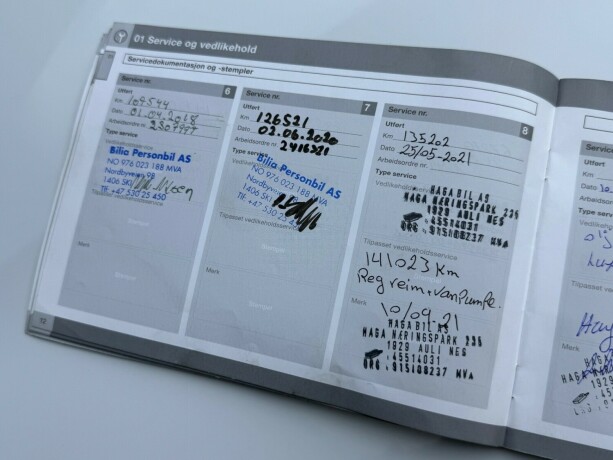 01 Service og vedlikehold
Servicedokumentasjon og -stempler
Service nr. 6
Utført
Km 109544
Dato 01.04.2018
Arbeidsordre nr.
Type service
Bilia Personbil AS
NO 976 023 188 MVA
Nordbyveien
1406 Ski
Tlf +47 530 25 450
Tilpasset vedlikeholdsservice
Merk
12
Service nr. 7
Utført
Km 126521
Dato 02.06.2020
Arbeidsordre nr. 2416381
Type service
Bilia Personbil AS
NO 976 023 188 MVA
Nordbyveien
1406 Ski
Tlf +47 530 25
Tilpasset vedlikeholdsservice
Merk
Service nr. 8
Utført
Km 135202
Dato 25/05-2021
Arbeidsordre nr.
Type service
HAGA BIL AS
HAGA NÆRINGSPARK 235
1929 AULI NES
:45514031
ORG :915108237 MVA
Tilpasset vedlikeholdsservice
141023 Km
Reg reim + VanPumpe.
Merk 10/09-21
HAGA BIL AS
HAGA NÆRINGSPARK 235
1929 AULI NES
:45514031
ORG :915108237 MVA
Service
Utført
Km
Dato
Arbeids
Type se
Vedlike
Tilpasset ve
Merk
HAGA
1929